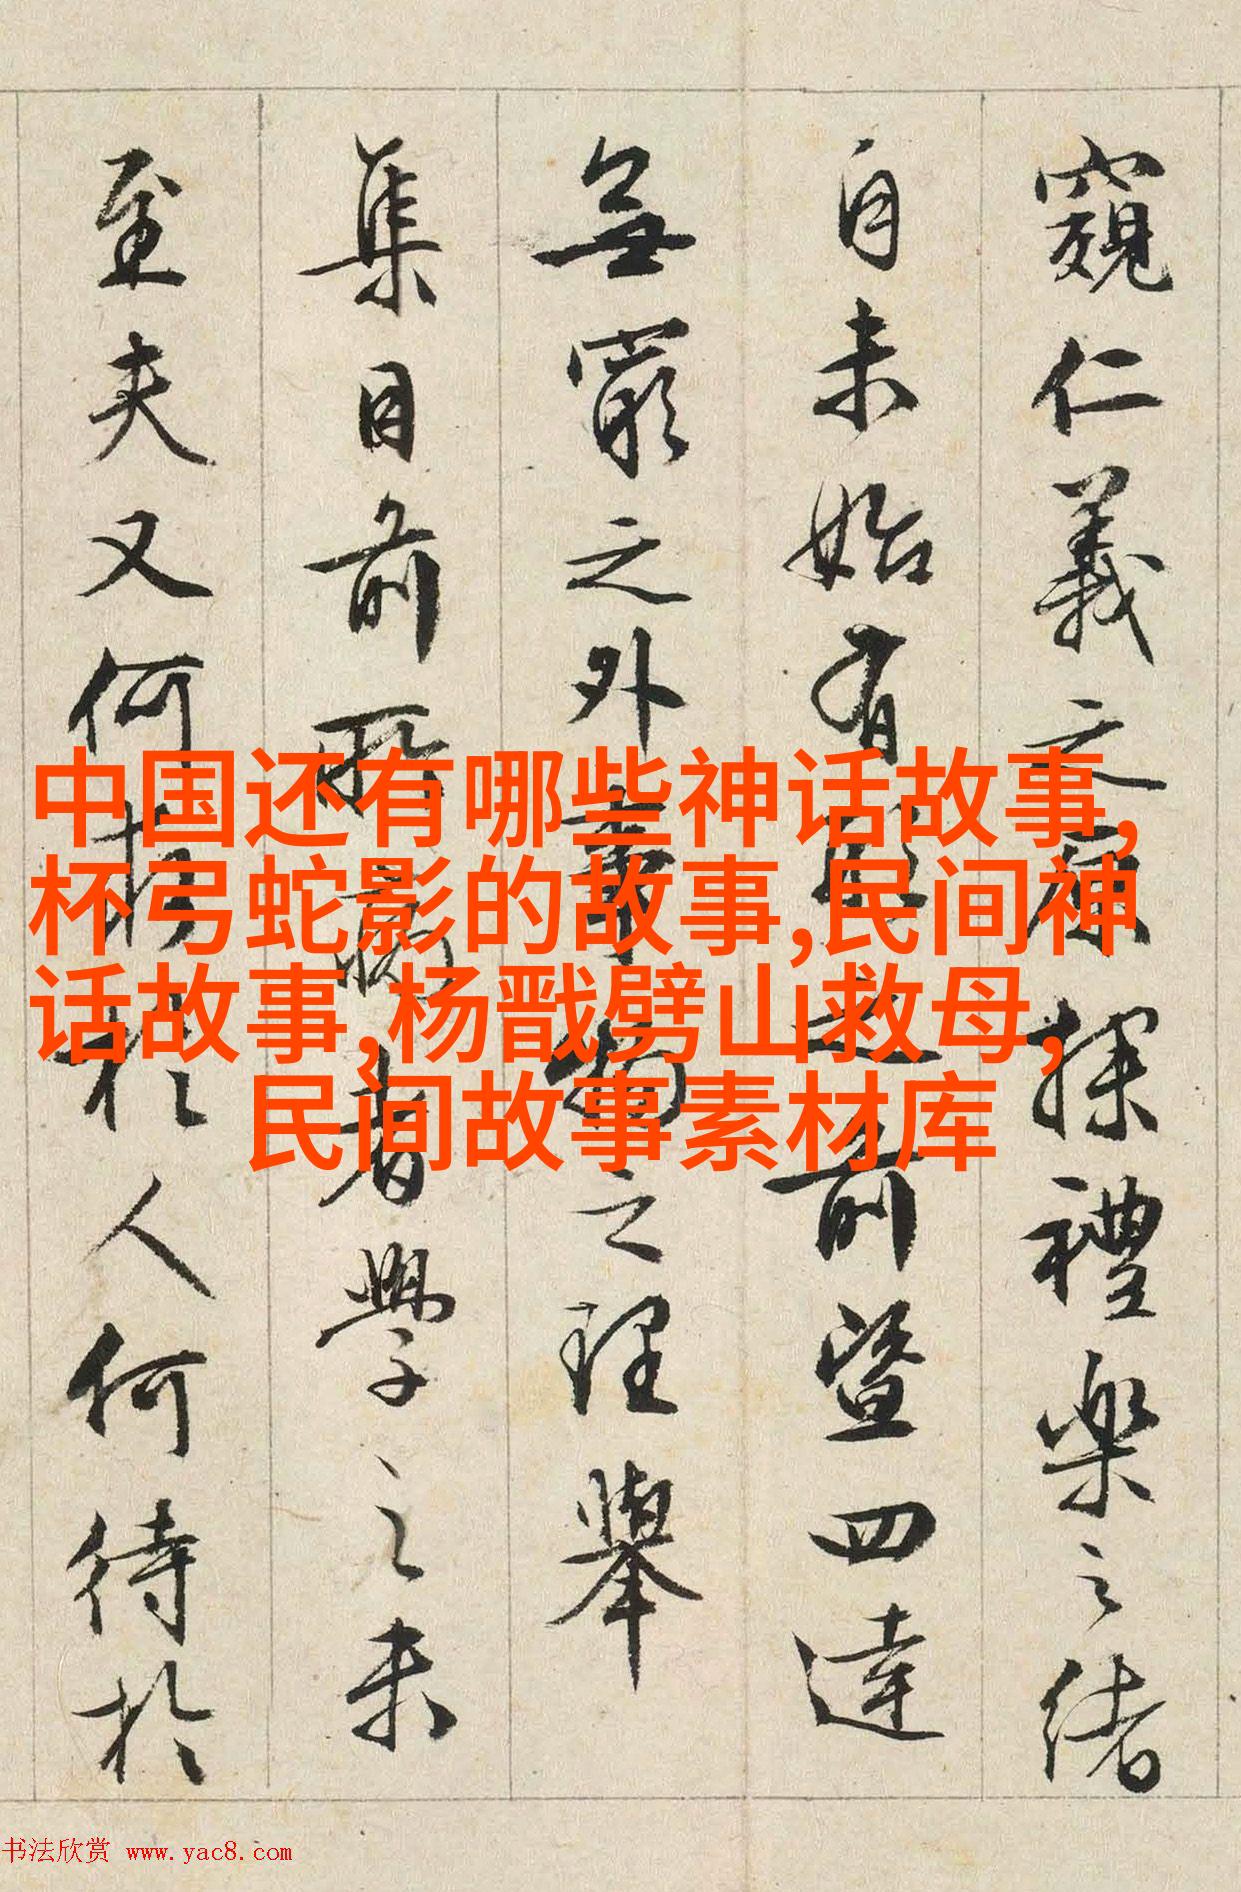 窺仁義之原探禮樂之緒
自未始有形之前暨四達
無窮之外事物之理舉
集目前所者學之未
至夫又何於人何待於
中国还有哪些神话故事,
杯弓蛇影的故事,民间神
话故事,杨戬劈山救母,
民间故事素材库
书法欣赏 www.yac8.com